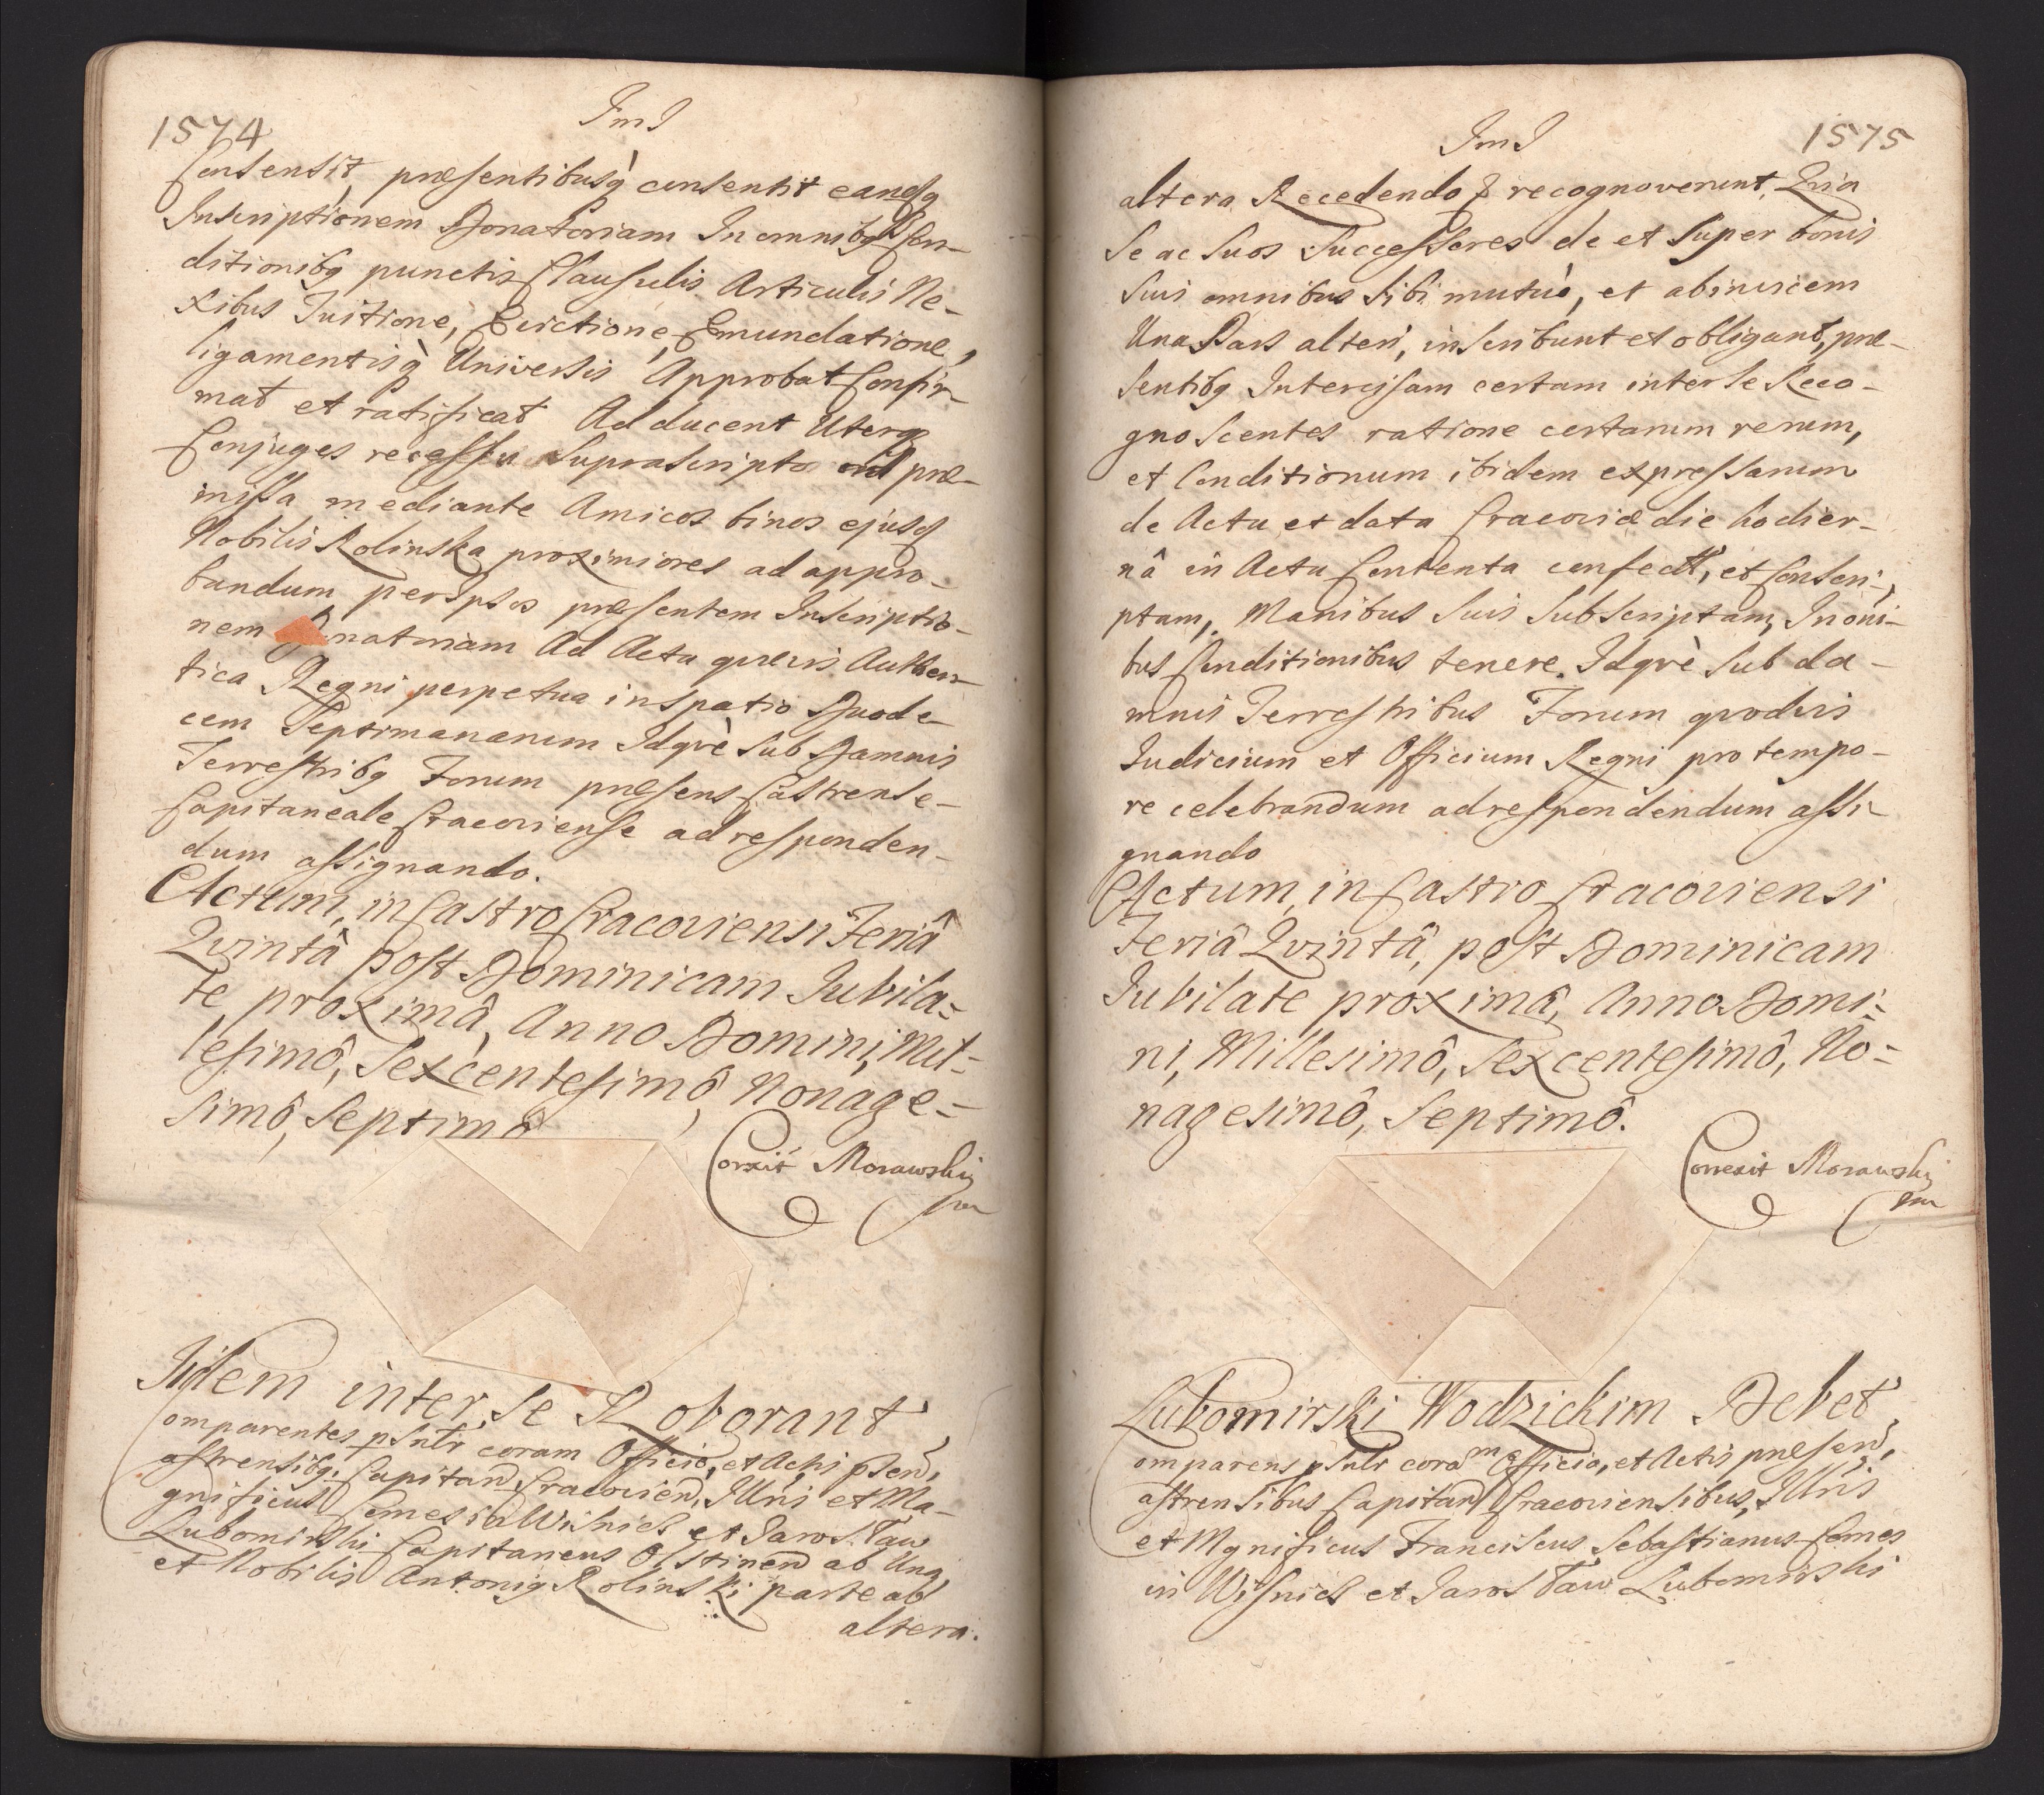 1574
ImI
Consensit, præsentibusq̀ consentit eandq
Inscriptionem Donatoriam In omnibq Con-
ditionibq punctis Clausulis Articulis Ne-
xibus Tuitione, Evictione, Emundatione,
ligamentisq̀ Universis Approbat Confir-
mat et ratificat Adducent Uterq
Conjuges recessu suprascripto ad præ-
missa mediante Amicos binos ejusq
Nobilis Rolinska proximiores ad appro-
bandum per Ipsos præsentem Inscriptio-
nem Donatoriam Ad Acta quævis Authen-
tica Regni perpetua in spatio Duode-
cem Septimanarum Idqvè sub Damnis
Terrestribq Forum præsens Castrense-
Capitaneale Cracoviense ad responden-
dum assignando.
Actum, in Castro Cracoviensi Feriâ
Qvintâ post Dominicam Jubila=
te proximâ, Anno Domini, Mil=
lesimô, Sexcentesimô, Nonage=
simô, Septimô
Corexit Morawski
mp
Iidem inter se Roborant,
omparentes psntr coram Officio, et Actis psen,
astrensibq. Capitan, Cracovien, Illris et Ma-
gnificus Comes in Wisnicz et Jarosław
Lubomirski Capitaneus Olstinen ab Una,
et Nobilis Antoniq Rolinski parte ab
altera.
1575
ImI
altera Recedendo & recognoverunt, Qvia
se ac suos Successores de et super bonis
suis omnibus sibi mutuò, et abinvicem
Una Pars alteri, inscribunt et obligant, præ-
sentibq Intercisam certam inter se Reco-
gnoscentes ratione certarum rerum,
et Conditionum ibidem expressarum
de Actu et data Cracoviæ die hodier-
nâ in Actu Contenta confect, et Conscri-
ptam, Manibus suis subscriptam, In omi-
bus Conditionibus tenere. Idqvè sub da-
mnis Terrestribus Forum qvodvis
Judicium et Officium Regni pro tempo-
re celebrandum ad respondendum assi-
gnando
Actum, in Castro Cracoviensi
Feriâ Qvintâ, post Dominicam
Jubilate proximâ, Anno Domi=
ni, Millesimô, Sexcentesimô, No=
nagesimô, Septimô.
Correxit Morawski
mp
Lubomirski Wodzickim Debet,
omparens psntr corãm Officio, et Actis præsen,
astrensibus Capitan Cracoviensibus, Illris
et Mgnificus Franciscus Sebastianus Comes
in Wisnicz et Jarosław Lubomirski